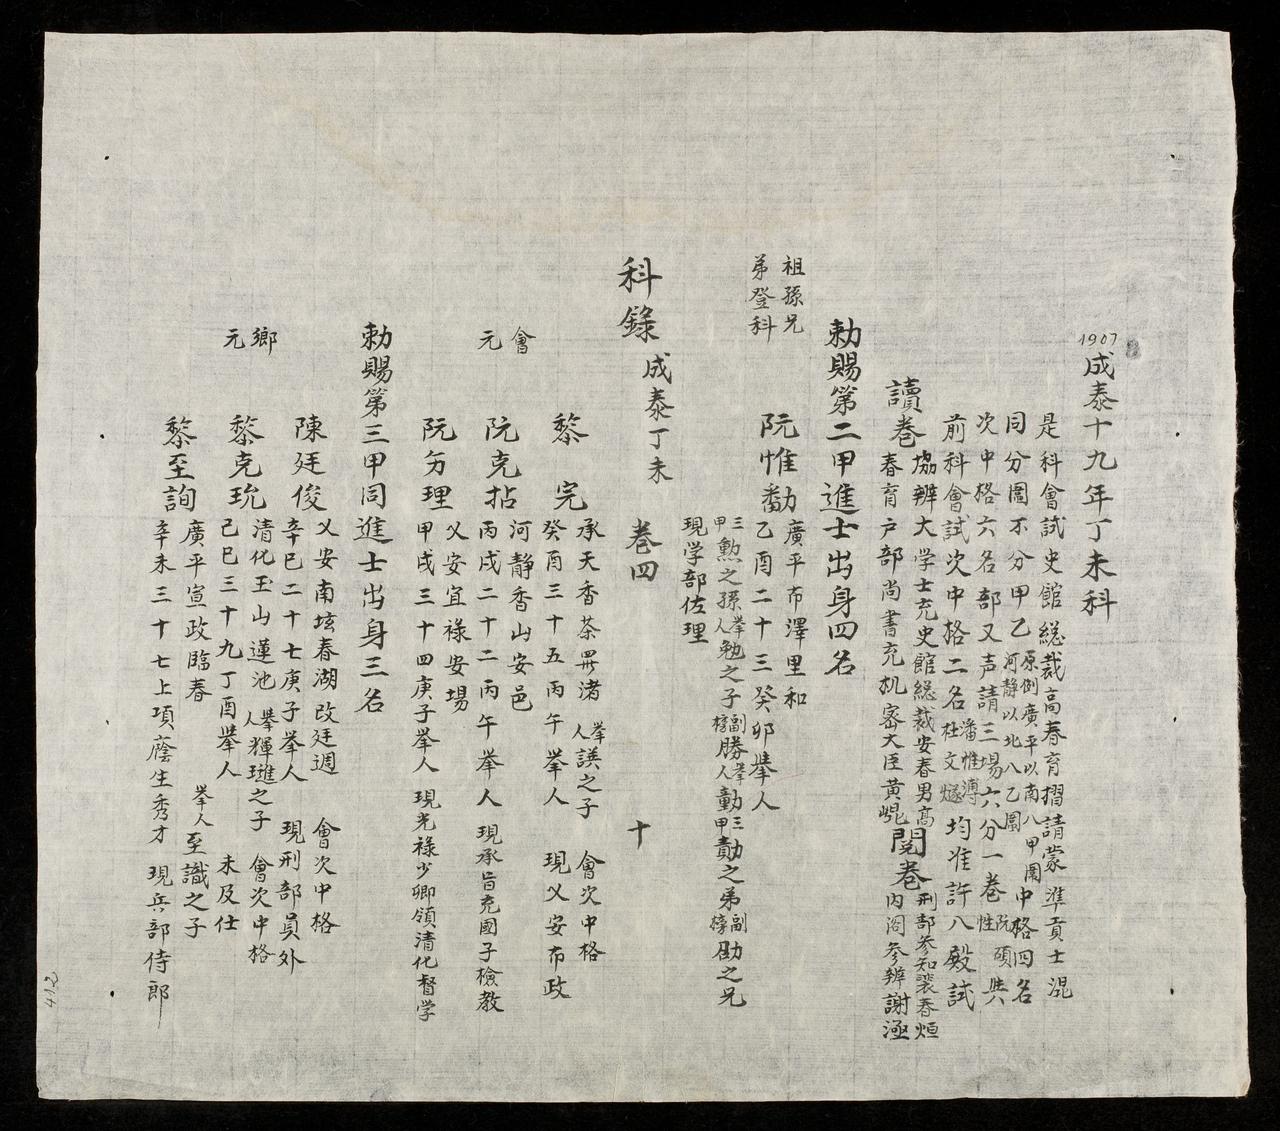 1907
成泰十九年丁未科
是科會試史館總裁高春育摺請蒙準貢士混
同分圍不分甲乙原例廣平以南八甲圍河靜以北八乙圍中格四名
次中格六名部又声請三場六分一卷阮碩性與
前科會試次中格二名潘惟溥杜文燧均准許八殿試
讀卷協辨大学士充史館總裁安春男高春育戶部尚書充机密大臣黃崐
閱卷刑部参知裴春烜内阁参辨謝逐
勅賜第二甲進士出身四名
祖孫兄
弟登科
阮惟勸
廣平布澤里和
乙酉二十三癸卯舉人
三甲勲之孫舉人勉之子副榜勝舉人動三甲勣之弟副榜勛之兄
現学部佐理
科錄
成泰丁未
卷四
十
黎完
承天香茶畀渚舉人謨之子會次中格
癸酉三十五丙午舉人現乂安布政
會
元
阮克拈
河靜香山安邑
丙戌二十二丙午舉人現承旨充國子檢教
阮勿理
乂安宜祿安場
甲戌三十四庚子舉人現光祿少卿領清化督学
勅賜第三甲同進士出身三名
陳廷俊
乂安南坛春湖改廷週會次中格
辛巳二十七庚子舉人現刑部員外
鄉
元
黎克玧
清化玉山蓮池舉人輝璡之子會次中格
己巳三十九丁酉舉人未及仕
黎至詢
廣平宣政臨春舉人至識之子
辛未三十七上項蔭生秀才現兵部侍郎
412